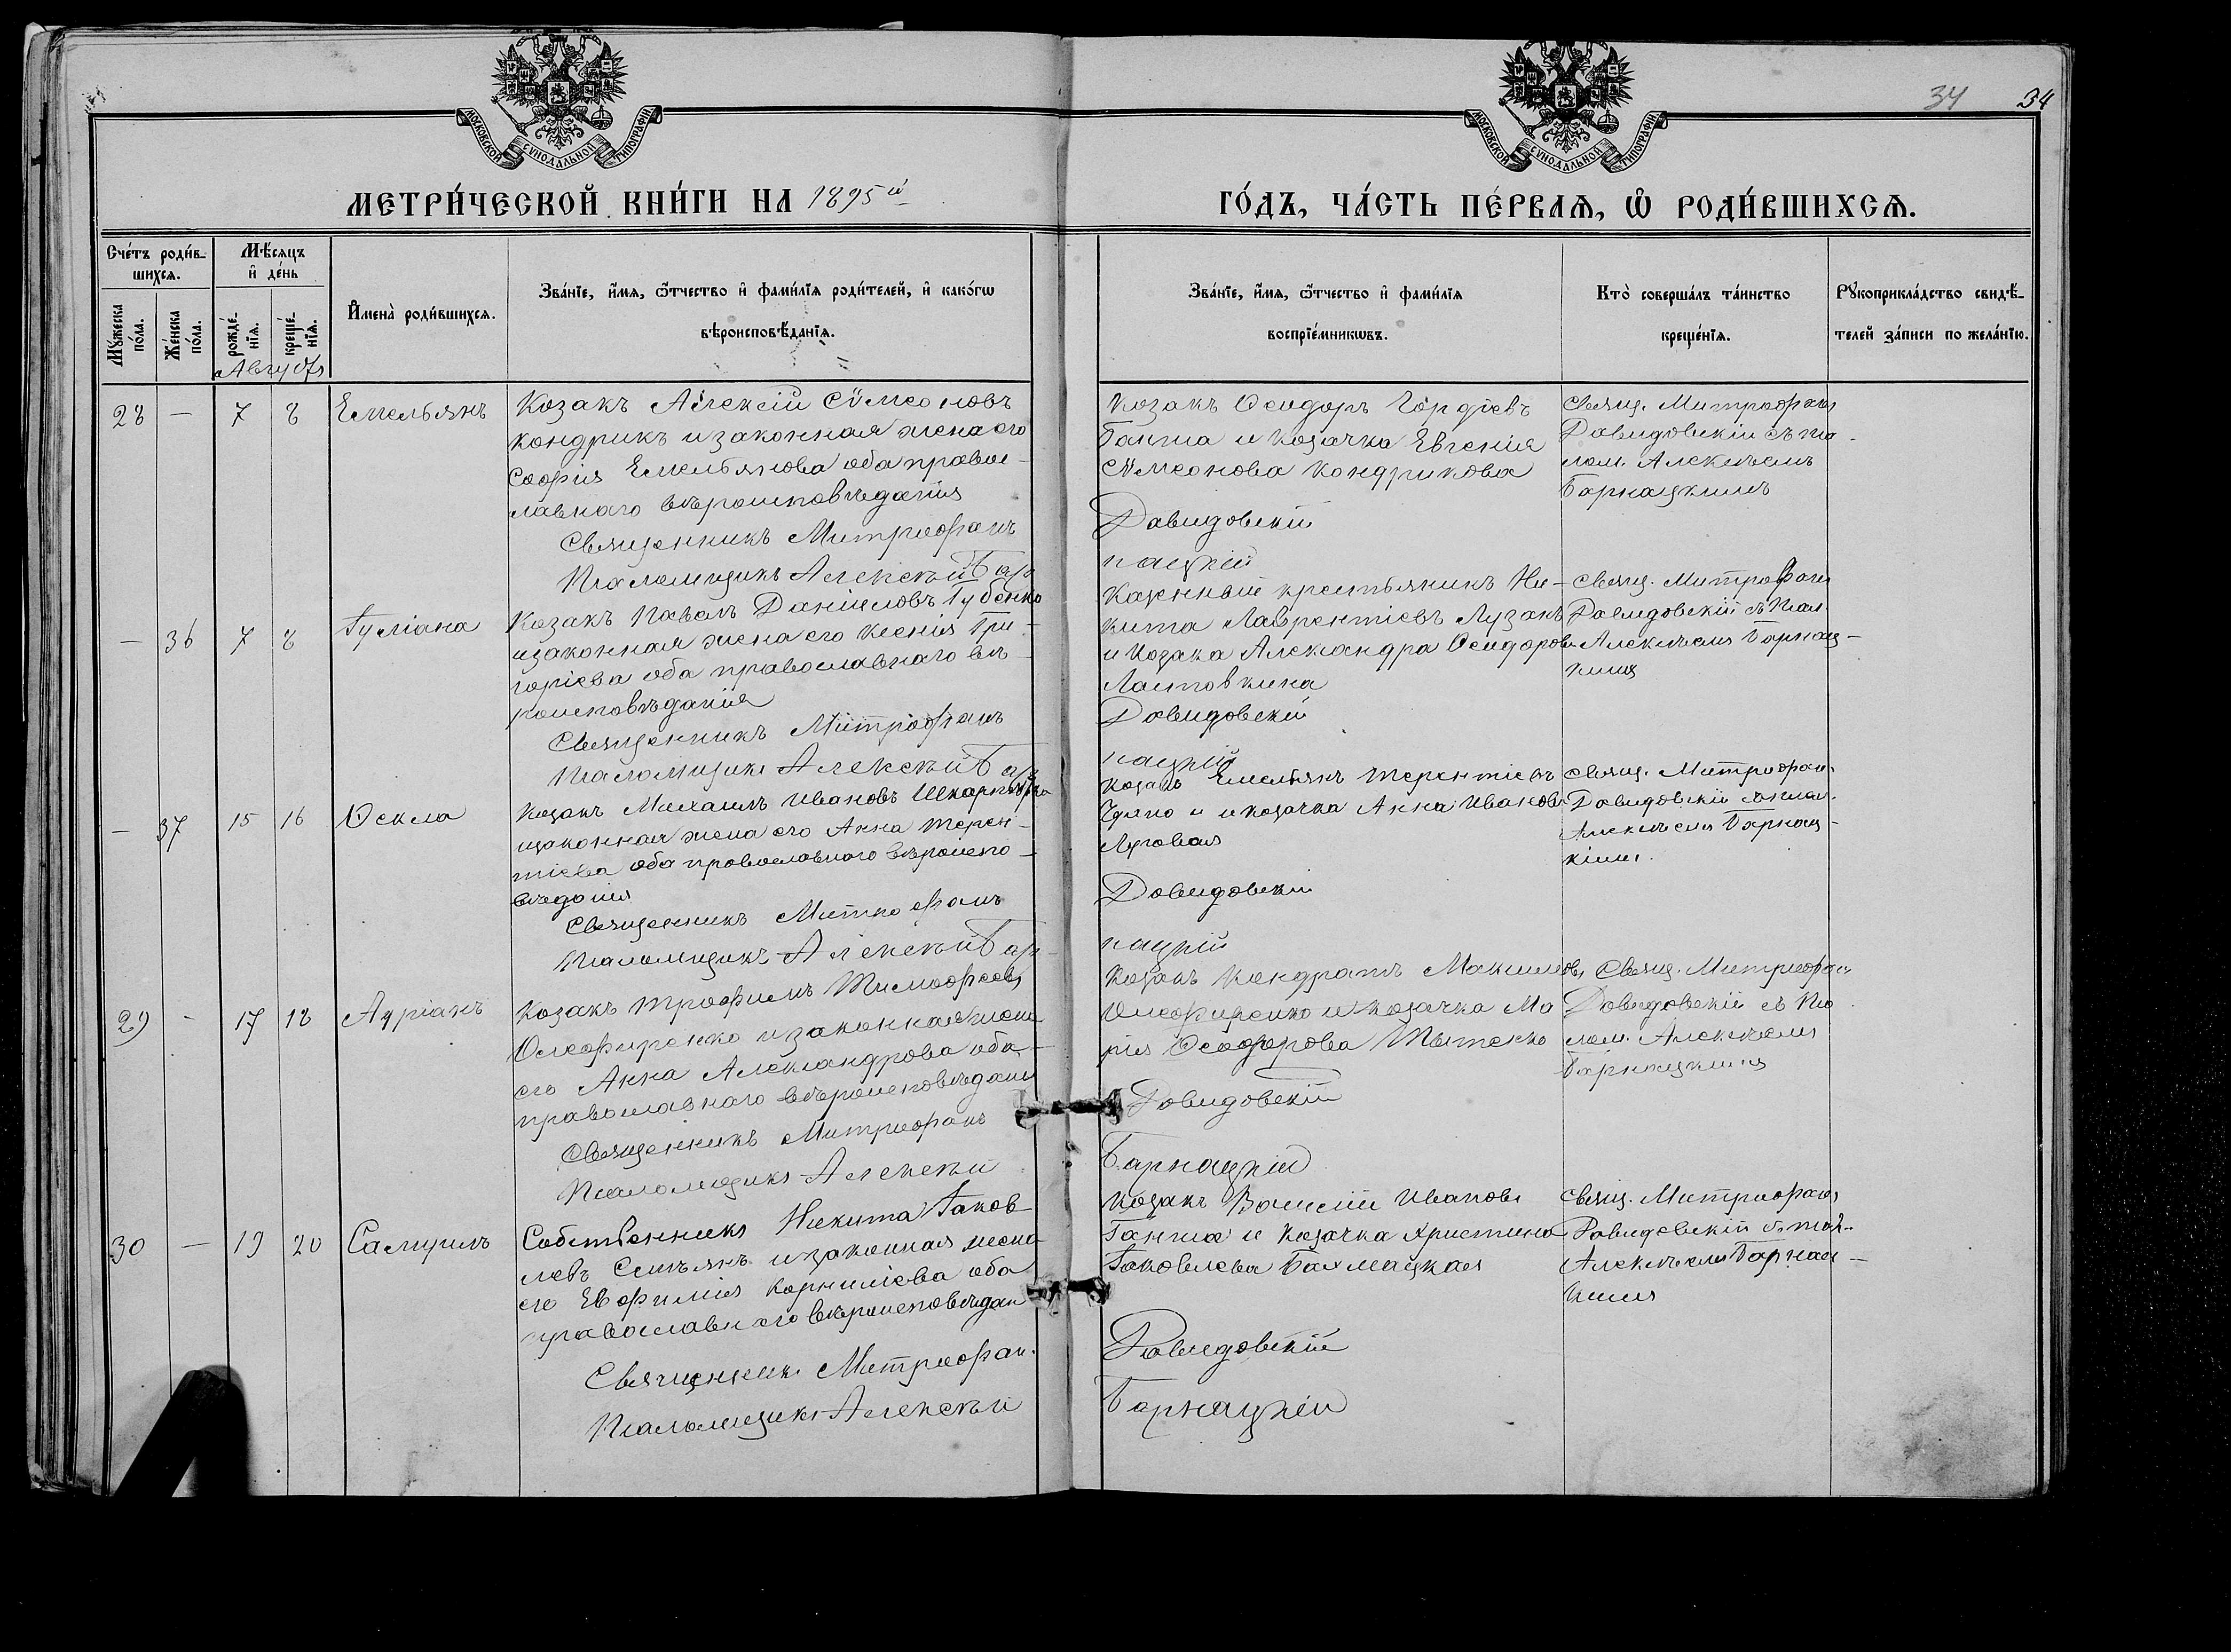 34 34
МОСКОВСКОЙ СѴНОДАЛЬНОЙ ТИПОГРАФІИ
МОСКОВСКОЙ СѴНОДАЛЬНОЙ ТИПОГРАФІИ
МЕТРИ́ЧЕСКОЙ КНИ́ГИ НА 1895й
ГО́ДЪ, ЧА́СТЬ ПЕ́РВАѦ, Ѡ РОДИ́ВШИХСѦ.
Сче́тъ роди́в-
шихсѧ.
Мѣ́сѧцъ
и҆ де́нь
Мꙋ́жеска
по́ла.
Же́нска
по́ла.
рожде́-
нїѧ.
креще́-
нїѧ.
И҆мена̀ роди́вшихсѧ.
Зва́нїе, и҆́мѧ, ѻ҆́тчество и҆ фами́лїѧ роди́телей, и҆ како́гѡ
вѣроисповѣ́данїѧ.
Зва́нїе, и҆́мѧ, ѻ҆́тчество и҆ фами́лїѧ
воспрїе́мникѡвъ.
Кто̀ соверша́лъ та́инство
креще́нїѧ.
Рꙋкоприкла́дство свидѣ́-
телей за́писи по жела́нїю.
Августъ
28 — 7 8 Емельянъ
Козакъ Алексій Сѵмеоновъ
Кондрикъ и законная жена его
Софія Емельянова оба правос-
лавнаго вѣроисповѣданія
Священникъ Митрофанъ
Псаломщикъ Алексѣй Бар
Козакъ Ѳеодоръ Гордіевъ
Ганжа и козачка Евгенія
Сѵмеонова Кондрикова
Давидовскій
нацкій
Свящ. Митрофанъ
Давидовскій съ пса-
лом. Алексѣемъ
Барнацкимъ
— 36 7 8 Іуліана
Козакъ Павелъ Даніиловъ Губенко
и законная жена его Ксенія Гри-
горіева оба православнаго вѣ-
роисповѣданія
Священникъ Митрофанъ
Псаломщикъ Алексѣй Бар
Казенный крестьянинъ Ни-
кита Лаврентіевъ Лузанъ
и козачка Александра Ѳеодорова
Ластовкина
Давидовскій
нацкій
Свящ. Митрофанъ
Давидовскій съ псал.
Алексѣемъ Барнац-
кимъ
— 37 15 16 Ѳекла
Козакъ Михаилъ Ивановъ
и законная жена его Анна Терен-
тіева оба православнаго вѣроиспо-
вѣданія
Священникъ Митрофанъ
Псаломщикъ Алексѣй Бар-
Козакъ Емельянъ Терентіевъ
и козачка Анна Иванова
Луговая
Давидовскій
нацкій
Свящ. Митрофан.
Давидовскій съ псал.
Алексѣемъ Барнац-
кимъ.
29 - 17 18 Адріанъ
Козакъ Трофимъ Тимофеевъ
Олефиренко и законная жена
его Анна Александрова оба
православнаго вѣроисповѣданія
Священникъ Митрофанъ
Псаломщикъ Алексѣй
Козакъ Кондратъ Максимовъ
Олефиренко и козачка Ма
рія Ѳеодорова
Давидовскій
Барнацкій
Свящ. Митрофанъ
Давидовскій съ пса
лом. Алексѣемъ
Барнацкимъ
30 — 19 20 Самуилъ
Собственникъ Никита Іаков-
левъ и законная жена
его Евфимія Корниліева оба
православнаго вѣроисповѣдан
Священник. Митрофан.
Псаломщикъ Алексѣй
Козакъ Василій Ивановъ
Ганжа и козачка Христина
Іаковлева Бахмацкая
Давидовскій
Барнацкій
Свящ. Митрофанъ
Давидовскій съ псал.
Алексѣемъ Барнац-
кимъ